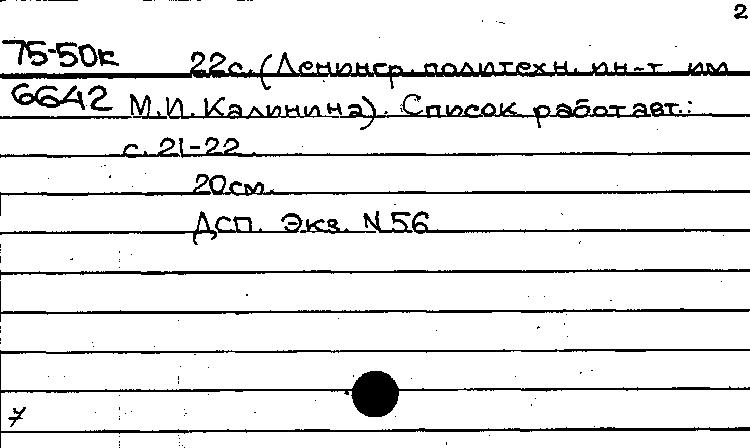 2
75-50к 22с. (Ленингр. политехн. ин-т им
6642 М.И. Калинина). Список работ авт.:
с. 21-22.
20см.
ДСП. Экз. N 56
7